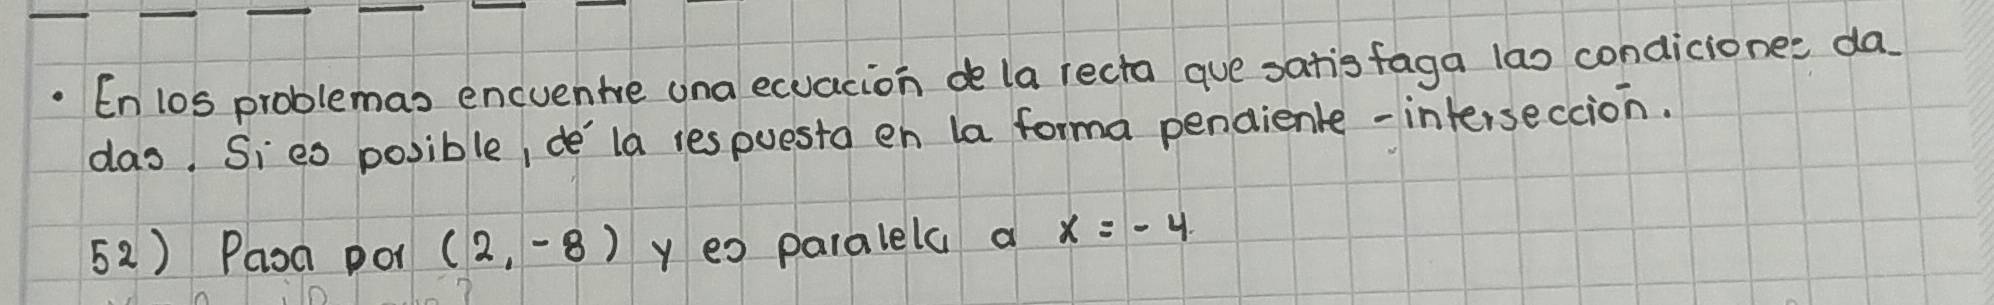 • En los problemas encuentre una ecuación de la recta que satisfaga las condiciones da-
das. Si es posible, dé la respuesta en la forma pendiente - intersección.
52) Pasa por (2, -8) y es paralela a x = -4.